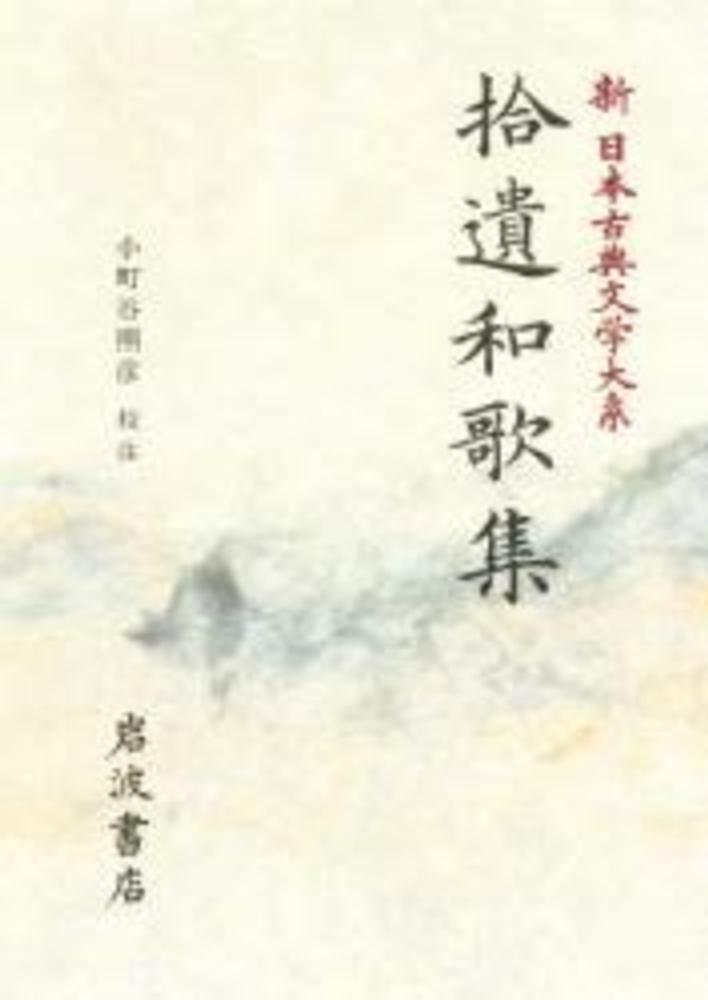 新 日本古典文学大系
拾遺和歌集
小町谷照彦 校注
岩波書店